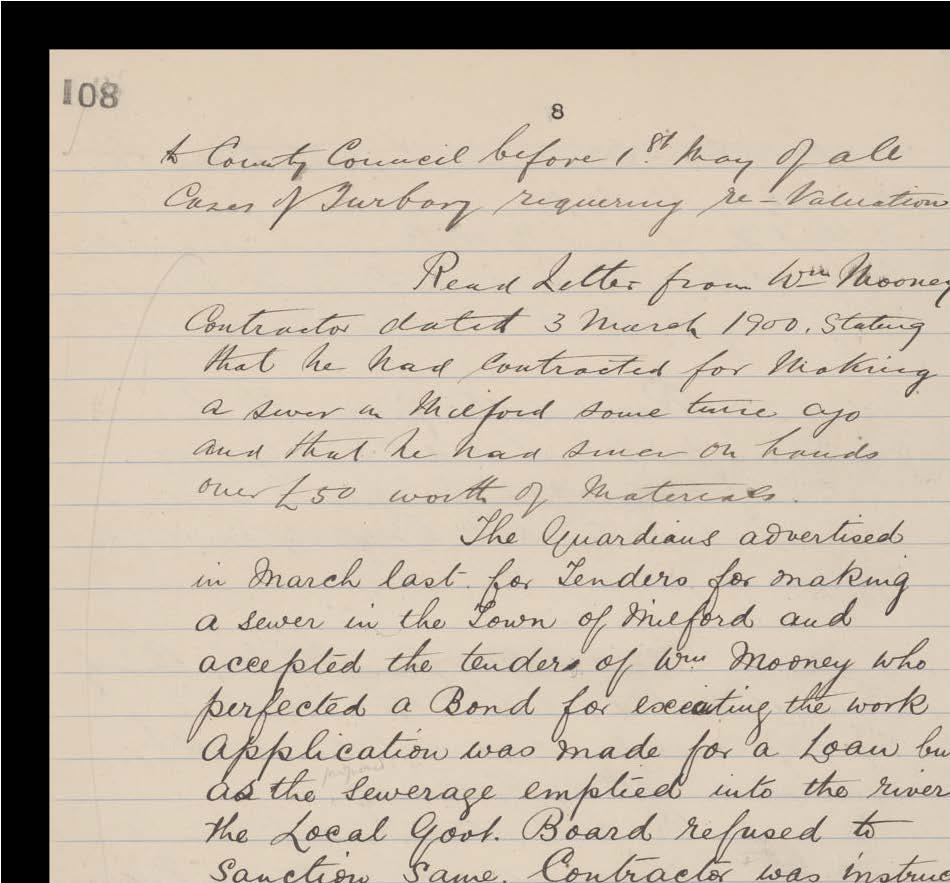 108
8
to County Council before 1st May of all
Cases of Turbary requering re-Valuation
Read Letter from Wm Mooney
Contractor dated 3 March 1900. Stating
that he had Contracted for Making
a sewer in Milford some time ago
and that he had since on hands
over £50 worth of Materials.
The Guardians advertised
in March last for Tenders for making
a sewer in the Town of Milford and
accepted the tenders of Wm Mooney who
perfected a Bond for executing the work
Application was made for a Loan bu
proposed
as the sewerage emptied into the river
the Local Govt. Board refused to
Sanction Same. Contractor was instruc